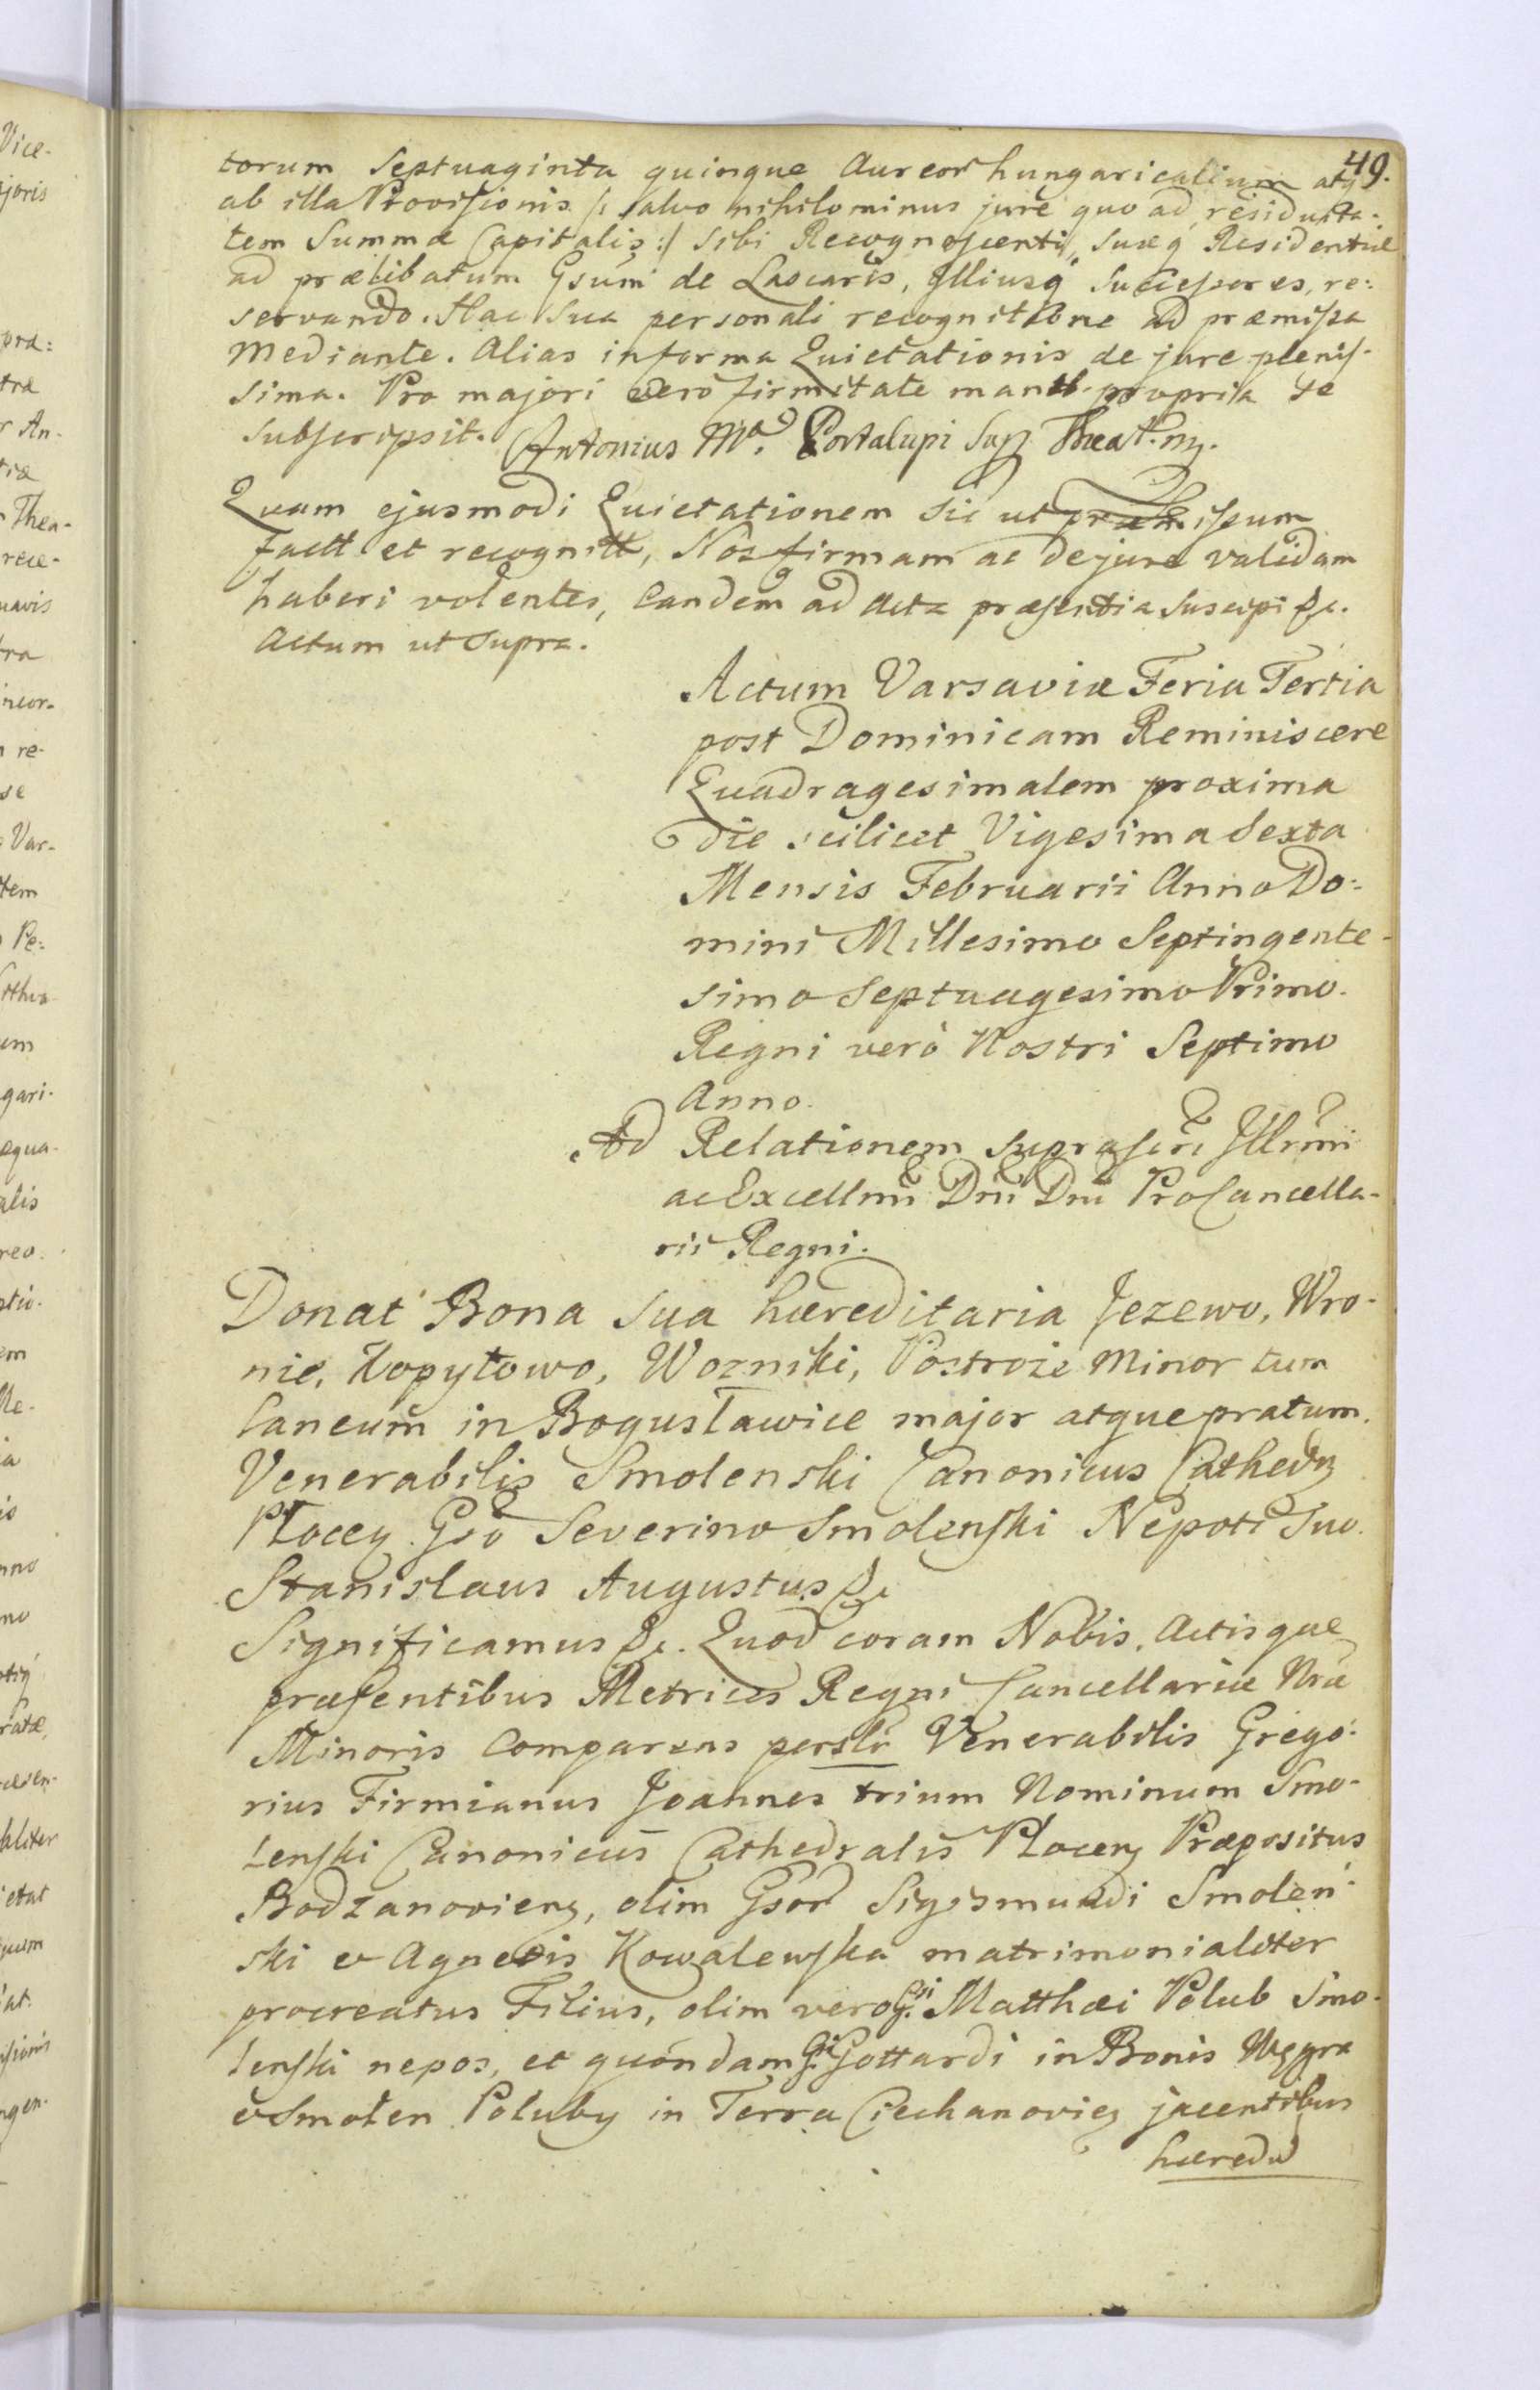 49.
torum Septuaginta quinque Aureor hungaricalium atq
ab illa Provisionis /: salvo nihilominus jure quo ad residuita-
tem Summæ Capitalis :/ sibi Recognoscenti, suæq Residentiæ
ad prælibatum Gsum de Lascaris, Illiusq Successores, re:
servando. Hac sua personali recognitione ad præmissa
mediante. Alias in forma Quietationis de jure plenis-
sima. Pro majori vero firmitate manu propria se
subscripsit. Antonius Ma. Portalupi Sup Theat. mp.
Quam ejusmodi Quietationem sic ut præmissum
factt et recognitt, Nos firmam ac de jure validam
haberi volentes, Eandem ad Acta præsentia suscipi &c.
Actum ut supra.
Actum Varsaviæ Feria Tertia
post Dominicam Reminiscere
Quadragesimalem proxima
die scilicet Vigesima Sexta
Mensis Februarii Anno Do:
mini Millesimo Septingente-
simo Septuagesimo Primo.
Regni verò Nostri Septimo
Anno.
Ad Relationem suprascri Illrmi
ac Excellmi Dni Dni ProCancella-
rii Regni.
Donat Bona sua hæreditaria Jezewo, Wro-
nie, Kopytowo, Wozniki, Postroże Minor tum
Laneum in Bogusławice major atque pratum.
Venerabilis Smolenski Canonicus Cathedr
Płocen. Gso Severino Smolenski Nepoti Suo.
Stanislaus Augustus &c
Significamus &c. Quod coram Nobis, Actisque
præsentibus Metrices Regni Cancellariæ Nræ
Minoris Comparens perslr Venerabilis Grego:
rius Firmianus Joannes trium Nominum Smo-
lenski Canonicus Cathedralis Płocen Præpositus
Bodzanovien, olim Gsor Sigismundi Smolen-
ski & Agnetis Kowalewska matrimonialiter
procreatus Filius, olim vero Gsi Matthæi Polub Smo-
lenski nepos, et quondam Gsi Gottardi in Bonis Węgra
& Smolen Poluby in Terra Ciechanovien jacentibus
hæredis